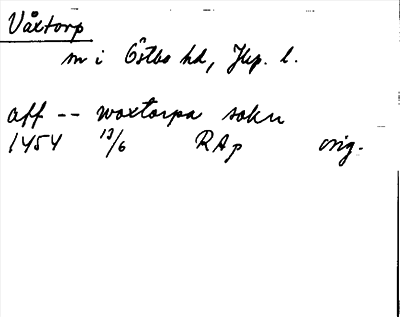 Våxtorp
sn i Östbo hd, Jkp. l.
aff -- woxtorpa sokn
1454 13/6 RAp orig.